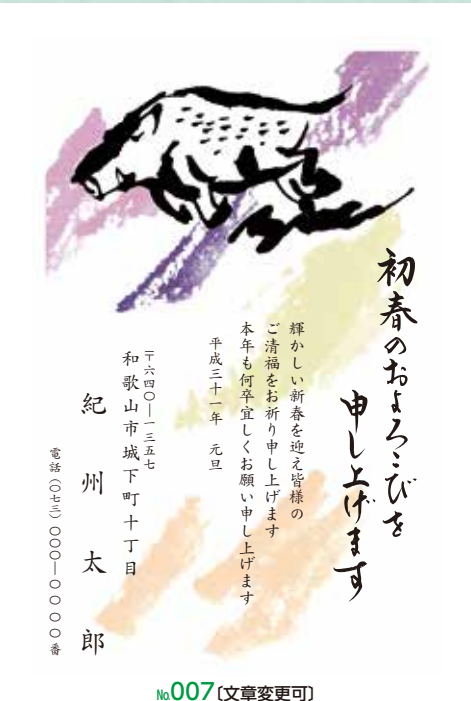 初春のおよろこびを
申し上げます
輝かしい新春を迎え皆様の
ご清福をお祈り申し上げます
本年も何卒宜しくお願い申し上げます
平成三十一年 元旦
〒六四〇―一三五七
和歌山市城下町十丁目
紀州太郎
電話(〇七三)〇〇〇―〇〇〇〇番
№007〔文章変更可〕